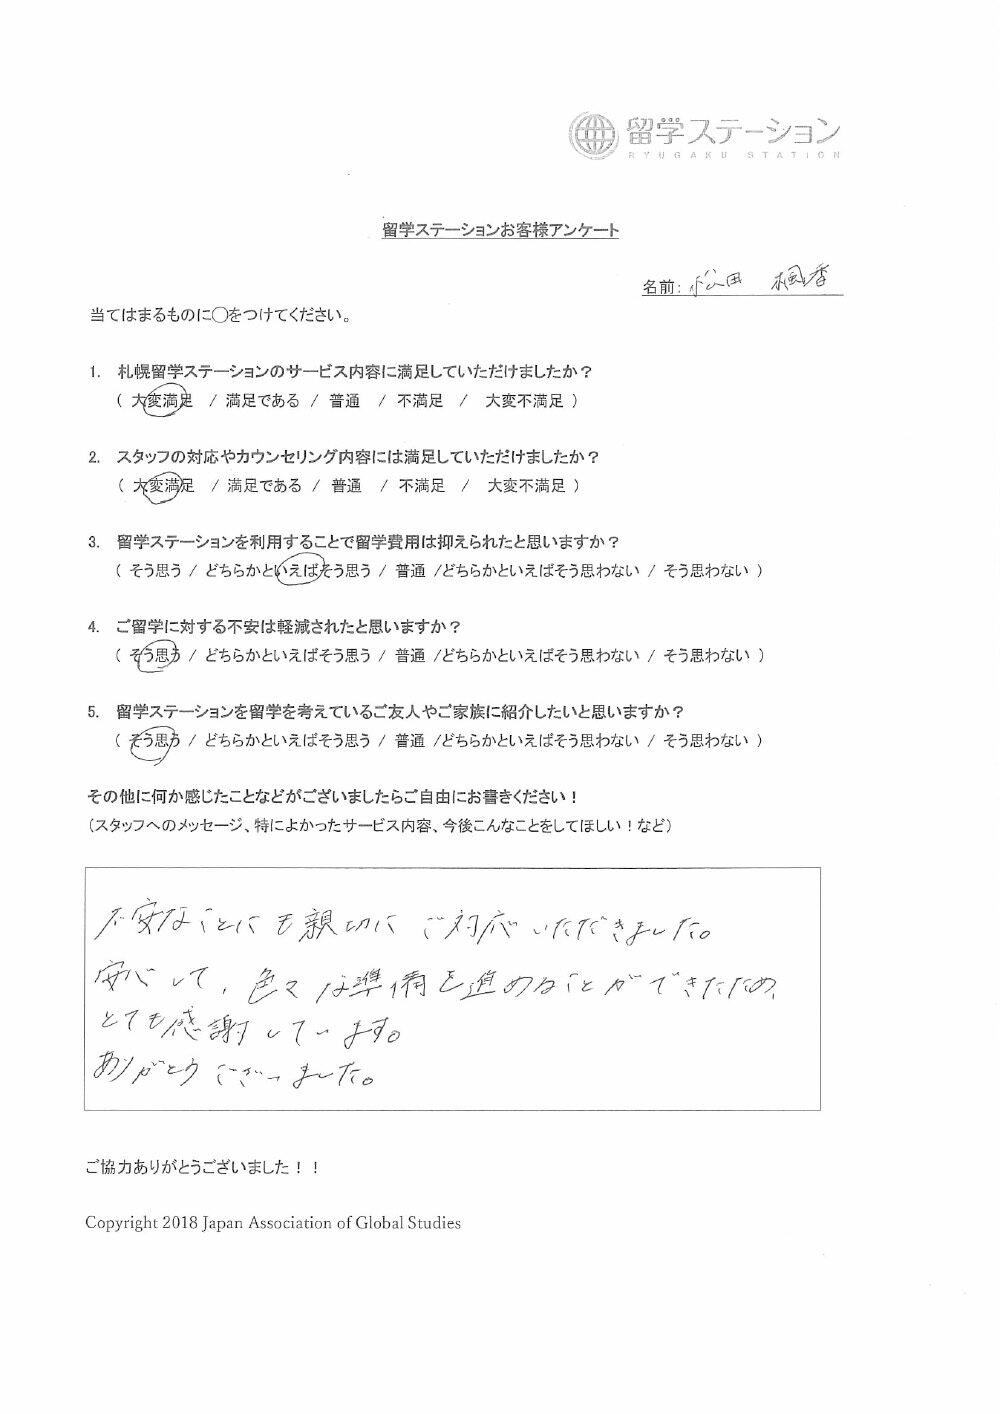 留学ステーション
RYUGAKU STATION
留学ステーションお客様アンケート
名前: 松田 楓香
当てはまるものに○をつけてください。
1. 札幌留学ステーションのサービス内容に満足していただけましたか？
( 大変満足 / 満足である / 普通 / 不満足 / 大変不満足 )
2. スタッフの対応やカウンセリング内容には満足していただけましたか？
( 大変満足 / 満足である / 普通 / 不満足 / 大変不満足 )
3. 留学ステーションを利用することで留学費用は抑えられたと思いますか？
( そう思う / どちらかといえばそう思う / 普通 /どちらかといえばそう思わない / そう思わない )
4. ご留学に対する不安は軽減されたと思いますか？
( そう思う / どちらかといえばそう思う / 普通 /どちらかといえばそう思わない / そう思わない )
5. 留学ステーションを留学を考えているご友人やご家族に紹介したいと思いますか？
( そう思う / どちらかといえばそう思う / 普通 /どちらかといえばそう思わない / そう思わない )
その他に何か感じたことなどがございましたらご自由にお書きください！
（スタッフへのメッセージ、特によかったサービス内容、今後こんなことをしてほしい！など）
不安なことにも親切にご対応いただきました。
安心して、色々な準備を進めることができたため、
とても感謝しています。
ありがとうございました。
ご協力ありがとうございました！！
Copyright 2018 Japan Association of Global Studies